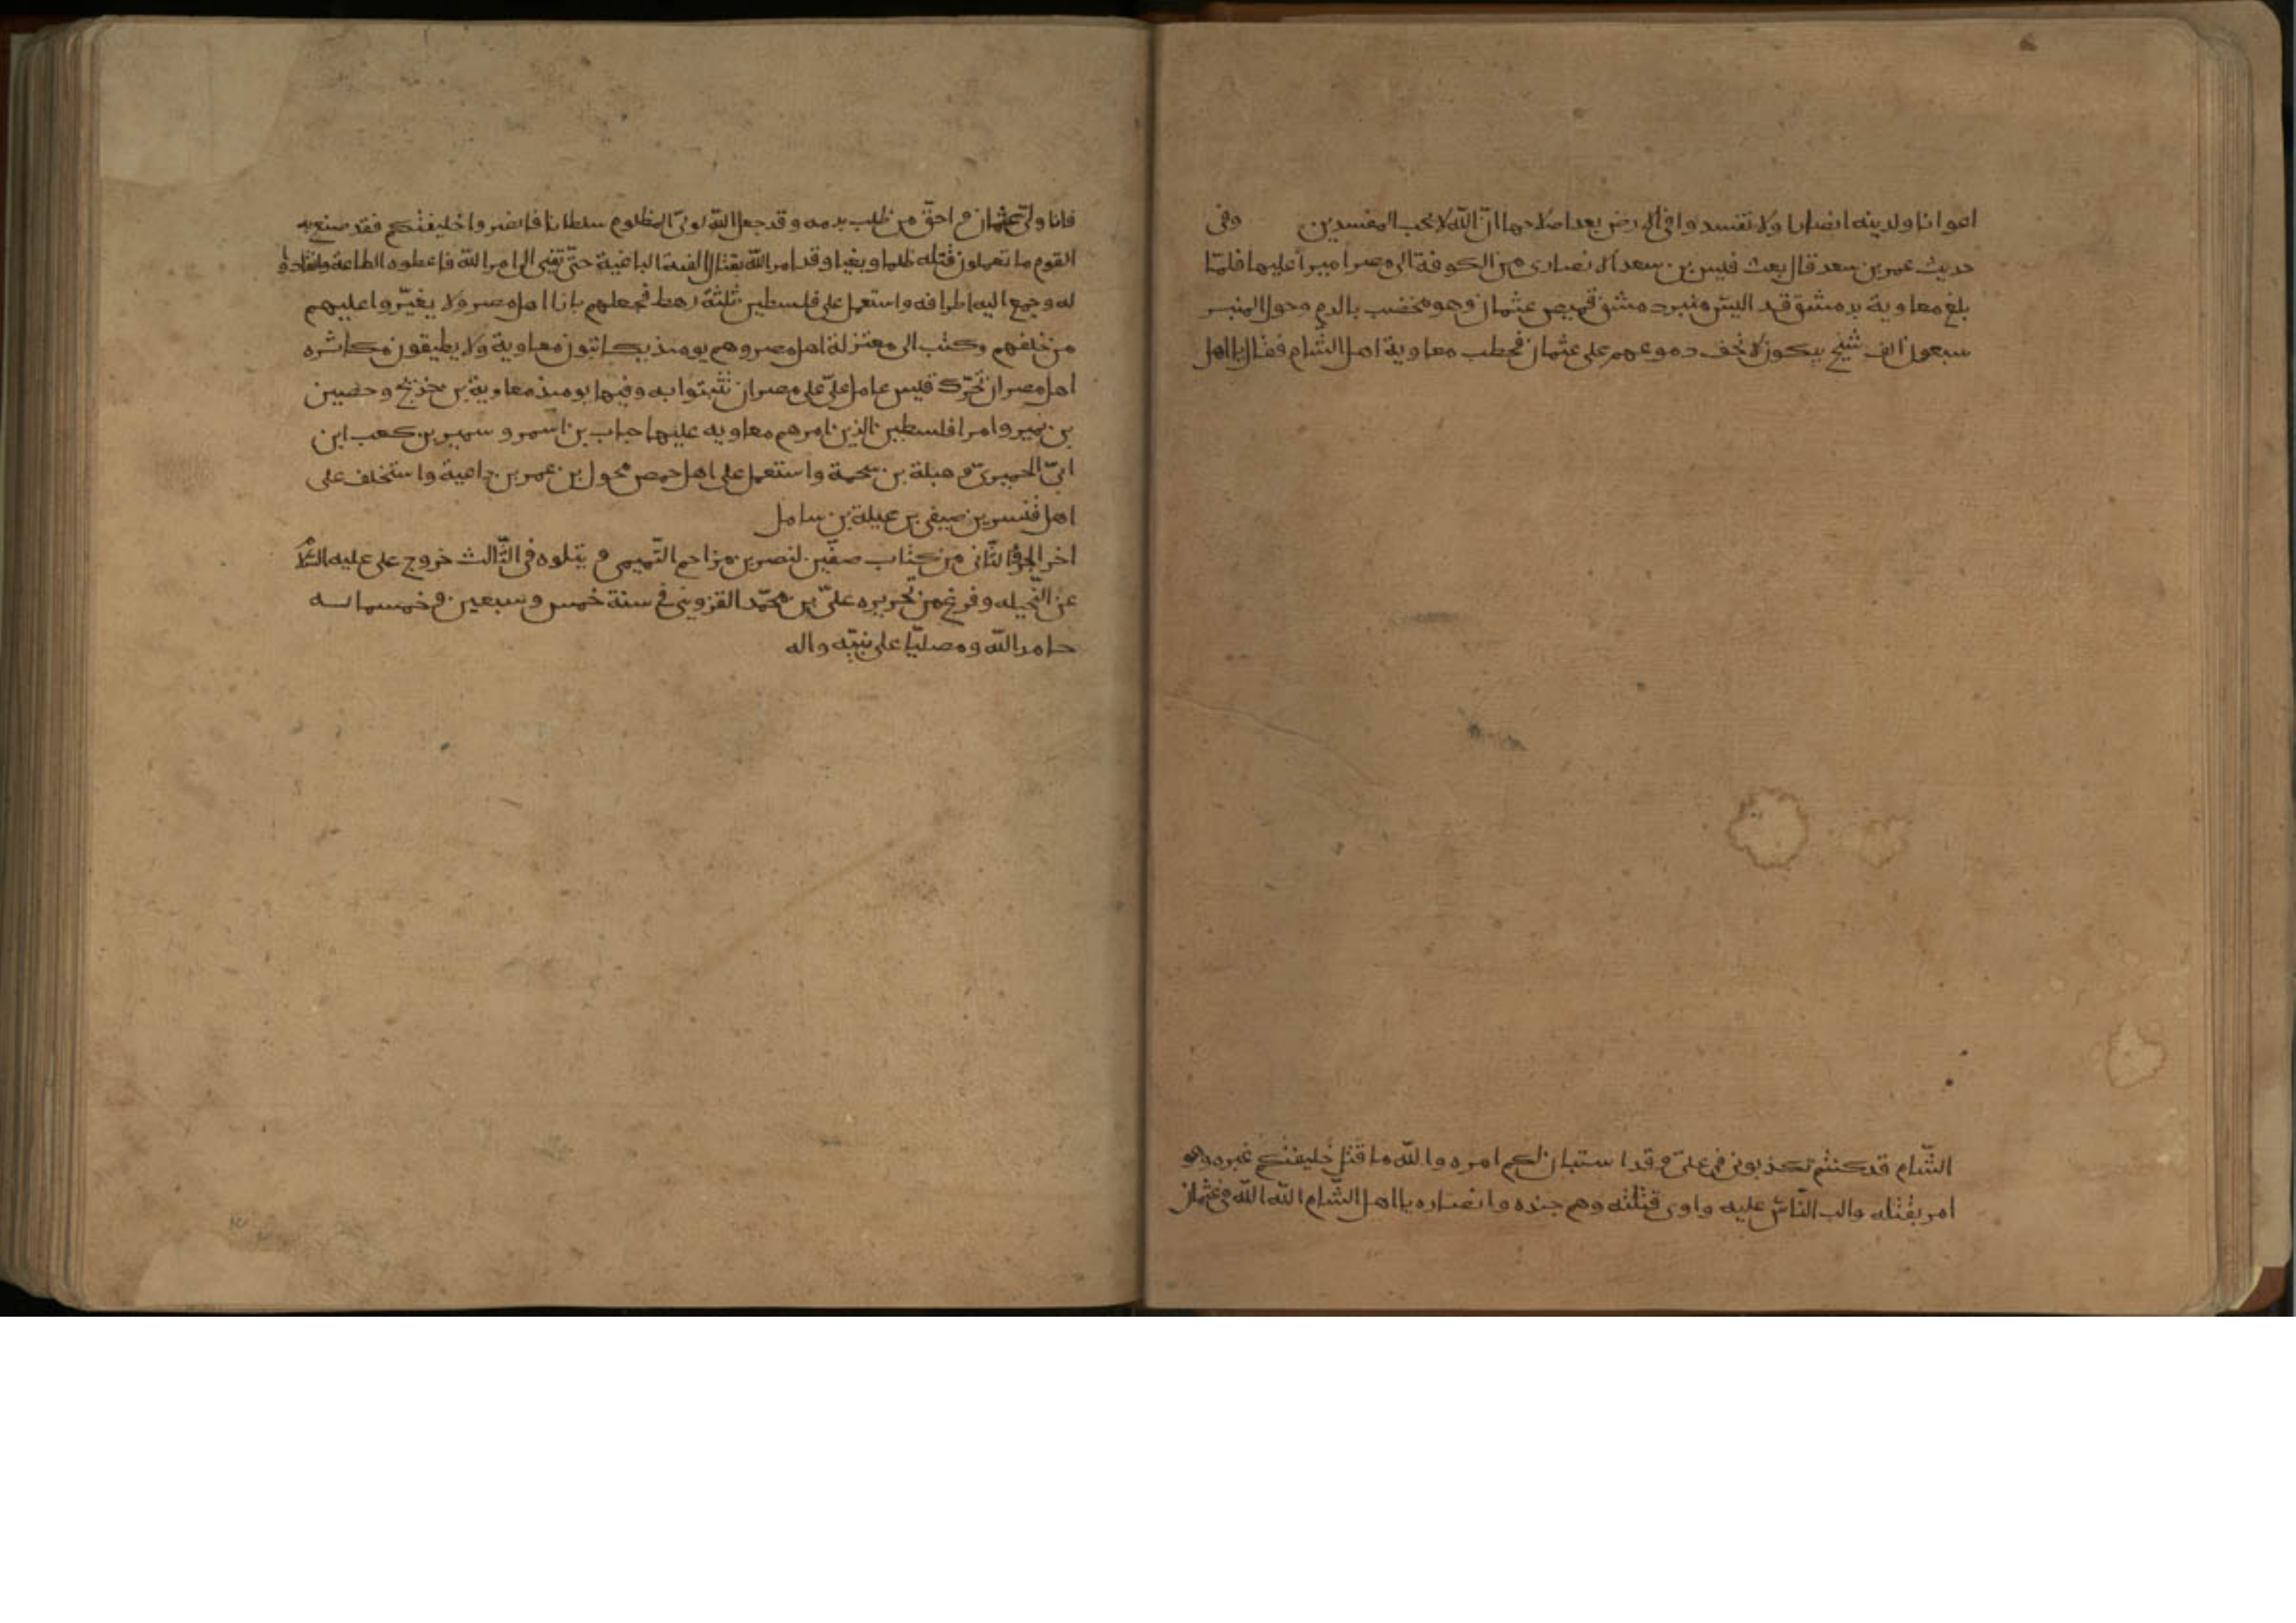 اعوانا ولدينه انصارا ولا تفسدوا فى الارض بعد اصلاحها ان الله لا يحب المفسدين وفى
حديث عمر بن سعد قال بعث قيس بن سعد الانصارى من الكوفة الى مصر اميرا عليها فلمّا
بلغ معاوية بدمشق قد البس منبر دمشق قميص عثمان وهو مخضب بالدم وحول المنبر
سبعون الف شيخ يبكون لا تجف دموعهم على عثمان فخطب معاوية اهل الشام فقال يا اهل
الشّام قد كنتم تكذبونى فى علىّ وقد استبان لكم امره والله ما قتل خليفتكم غيره وهو
امر بقتله والب النّاس عليه واوى قتلته وهم جنده وانصاره يا اهل الشّام الله الله فى عثمان
فانا ولىّ عثمان واحقّ من طلب بدمه وقد جعل الله لولىّ المظلوم سلطانا فانصروا خليفتكم فقد صنع به
القوم ما تعملون قتله ظلما وبغيا وقد امر الله بقتال الفئة الباغية حتّى تفئ الى امر الله فاعطوه الطاعة وانقادوا
له وجمع اليه اطرافه واستعمل على فلسطين ثلثة رهط فجعلهم بازا اهل مصر ولا يغيّروا عليهم
من خلفهم وكتب الى معتزلة اهل مصر وهم يومئذ يكاتبون معاوية ولا يطيقون مكاثرة
اهل مصر ان تحرّك قيس عامل علىّ على مصر ان تثبتوا به وفيها يومئذ معاوية بن خديج وحصين
بن نمير وامرا فلسطين الذين امرهم معاويه عليها حباب بن اسمر وسمير بن كعب ابن
ابىّ الحميرىّ وهبلة بن سحمة واستعمل على اهل حمص محول بن عمر بن داعية واستخلف على
اهل قنسرين صيفى بن عيلة بن سامل
اخر الجزؤ الثّانى من كتاب صفّين لنصر بن مزاحم التّميمى و يتلوه فى الثّالث خروج على عليه السّلام
عن النّخيله وفرغ من تحريره علىّ بن محمّد القزوينى فى سنة خمس وسبعين وخمسمائه
حامد الله ومصليّا على نبيّه واله